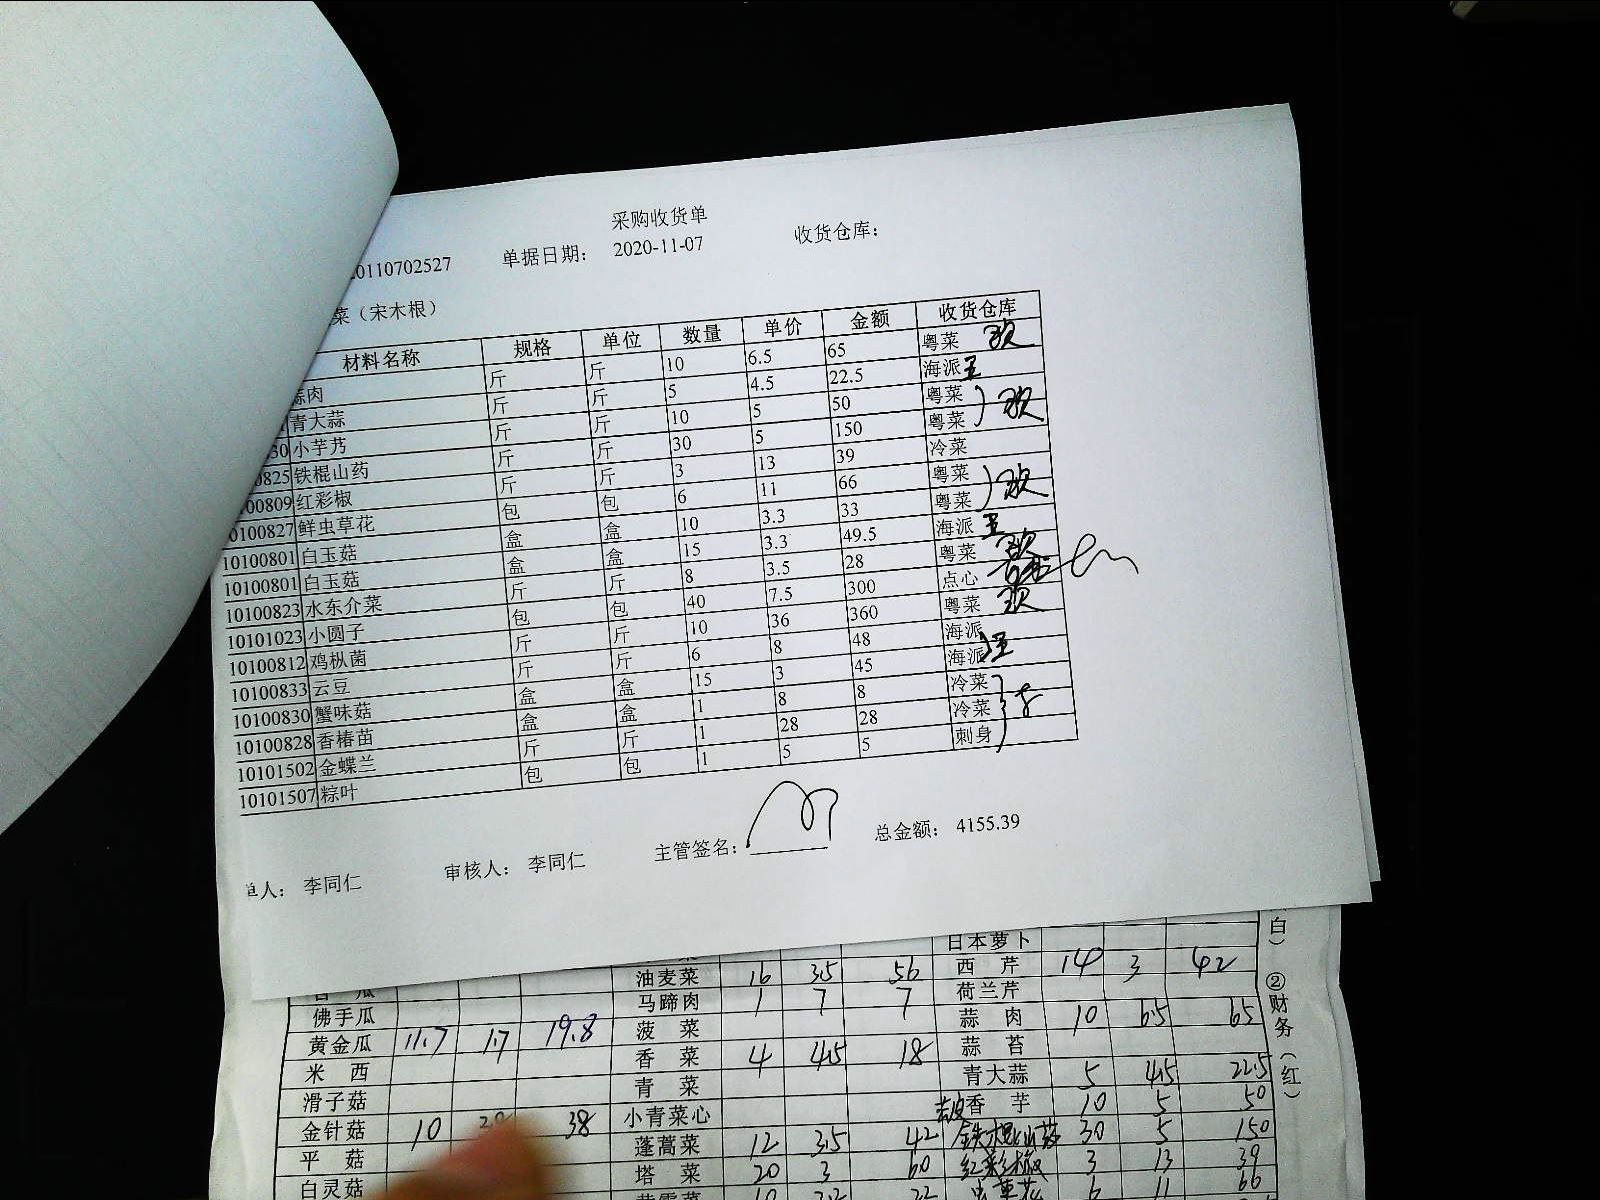 采购收货单
20110702527 单据日期： 2020-11-07 收货仓库：
菜（宋木根）
材料名称 规格 单位 数量 单价 金额 收货仓库
蒜肉 斤 斤 10 6.5 65 粤菜
青大蒜 斤 斤 5 4.5 22.5 海派 王
30 小芋艿 斤 斤 10 5 50 粤菜
0825 铁棍山药 斤 斤 30 5 150 粤菜
100809 红彩椒 斤 斤 3 13 39 冷菜
0100827 鲜虫草花 包 包 6 11 66 粤菜
10100801 白玉菇 盒 盒 10 3.3 33 粤菜
10100801 白玉菇 盒 盒 15 3.3 49.5 海派 王
10100823 水东介菜 斤 斤 8 3.5 28 粤菜
10101023 小圆子 包 包 40 7.5 300 点心
10100812 鸡枞菌 斤 斤 10 36 360 粤菜
10100833 云豆 斤 斤 6 8 48 海派
10100830 蟹味菇 盒 盒 15 3 45 海派 王
10100828 香椿苗 盒 盒 1 8 8 冷菜
10101502 金蝶兰 斤 斤 1 28 28 冷菜
10101507 粽叶 包 包 1 5 5 刺身
单人： 李同仁 审核人： 李同仁 主管签名： 总金额： 4155.39
日本萝卜
油麦菜 16 3.5 56 西芹 14 3 42
马蹄肉 1 7 7 荷兰芹
佛手瓜 菠菜 蒜肉 10 6.5 65
黄金瓜 11.7 1.7 19.8 香菜 4 4.5 18 蒜苔
米西 青菜 青大蒜 5 4.5 22.5
滑子菇 小青菜心 香芋 10 5 50
金针菇 10 38 蓬蒿菜 12 3.5 42 铁棍山药 30 5 150
平菇 塔菜 20 3 60 红彩椒 3 13 39
白灵菇 6 11 66
白） ②财务（红）